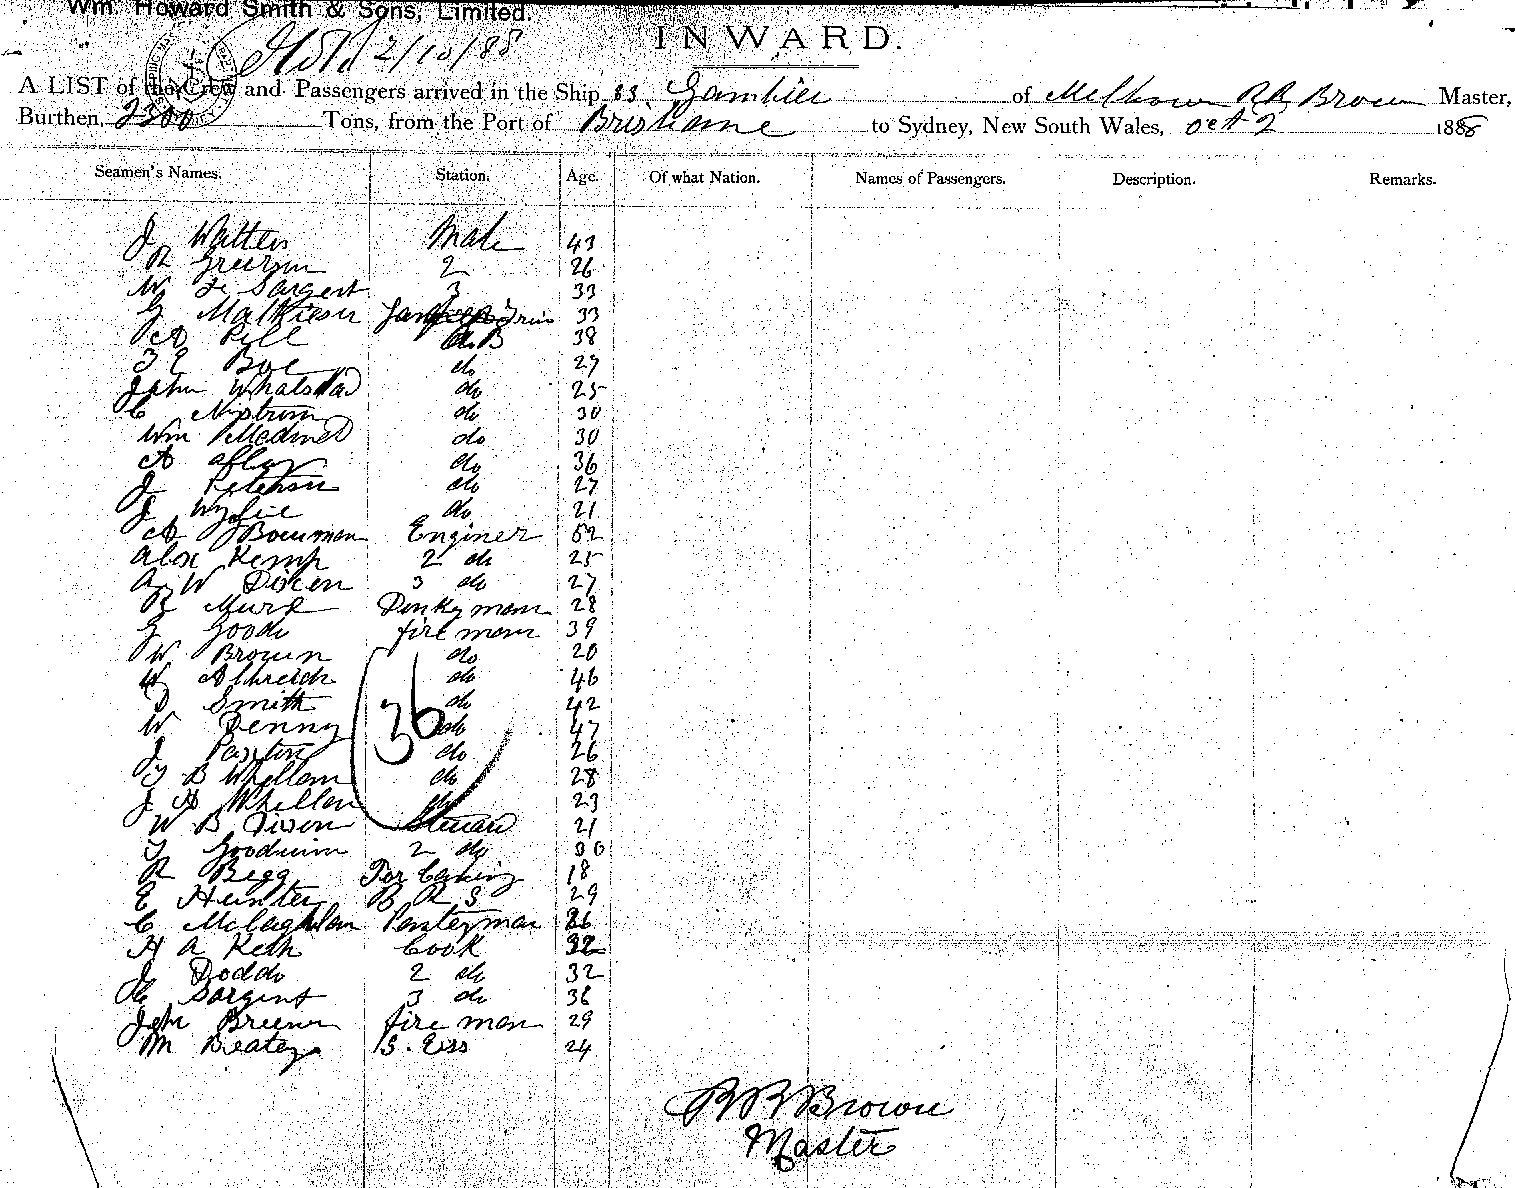 Wm. Howard Smith & Sons, Limited.
2/10/88
INWARD.
A LIST of the Crew and Passengers arrived in the Ship S.S. Gambier of Melbourne R B Brown Master,
Burthen, 2300 Tons, from the Port of Brisbane to Sydney, New South Wales, Oct 2 1888
Seamen's Names. Station. Age. Of what Nation. Names of Passengers. Description. Remarks.
J Mate 43
R 2 26
W Sargent 3 33
G Mathiesen 33
A Pill A.B 38
Boe do 27
John do 25
C Nystrom do 30
Wm do 30
A do 36
J Peterson do 27
J Wylie do 21
A Bowman Enginer 52
Alex Kemp 2 do 25
A W Dixon 3 do 27
R Donkyman 28
G Goode fireman 39
W Brown do 20
W do 46
D Smith do 42
W Denny do 47
J Paxton do 26
T B Whellam do 28
J A Whellan do 23
36
W B Dixon Steward 21
T Goodwin 2 do 30
R Begg 18
E Hunter B R S 29
C Panteryman
H A Keth Cook 32
J Dodds 2 do 32
C Sargent 3 do 36
John Breenen fireman 29
M Beatey 24
R B Brown
Master